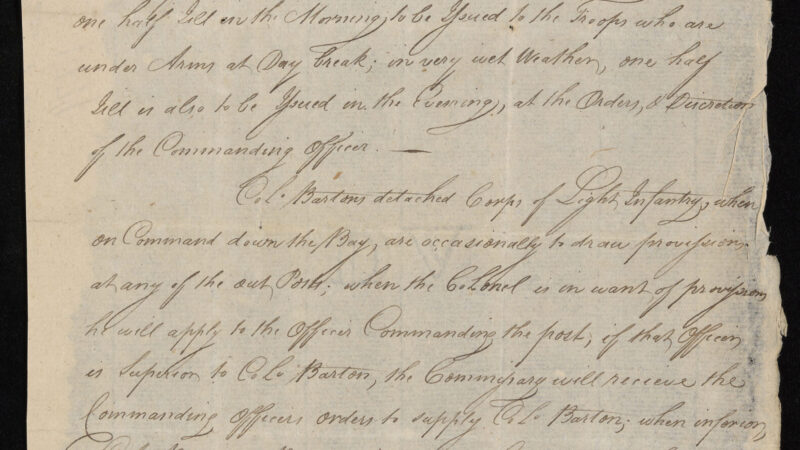 one half Gill in the Morning, to be Issued to the Troops who are
under Arms at Day break; in very wet Weather, one half
Gill is also to be Issued in the Evening, at the Orders, & Discretion
of the Commanding Officer. —
Colo Bartons detached Corps of Light Infantry, when
on Command down the Bay, are occasionally to draw provisions
at any of the out Posts; when the Colonel is in want of provisions
he will apply to the Officer Commanding the post, if that Officer
is Superior to Colo Barton, the Commissary will recieve the
Commanding Officers orders to supply Colo Barton; when inferior,